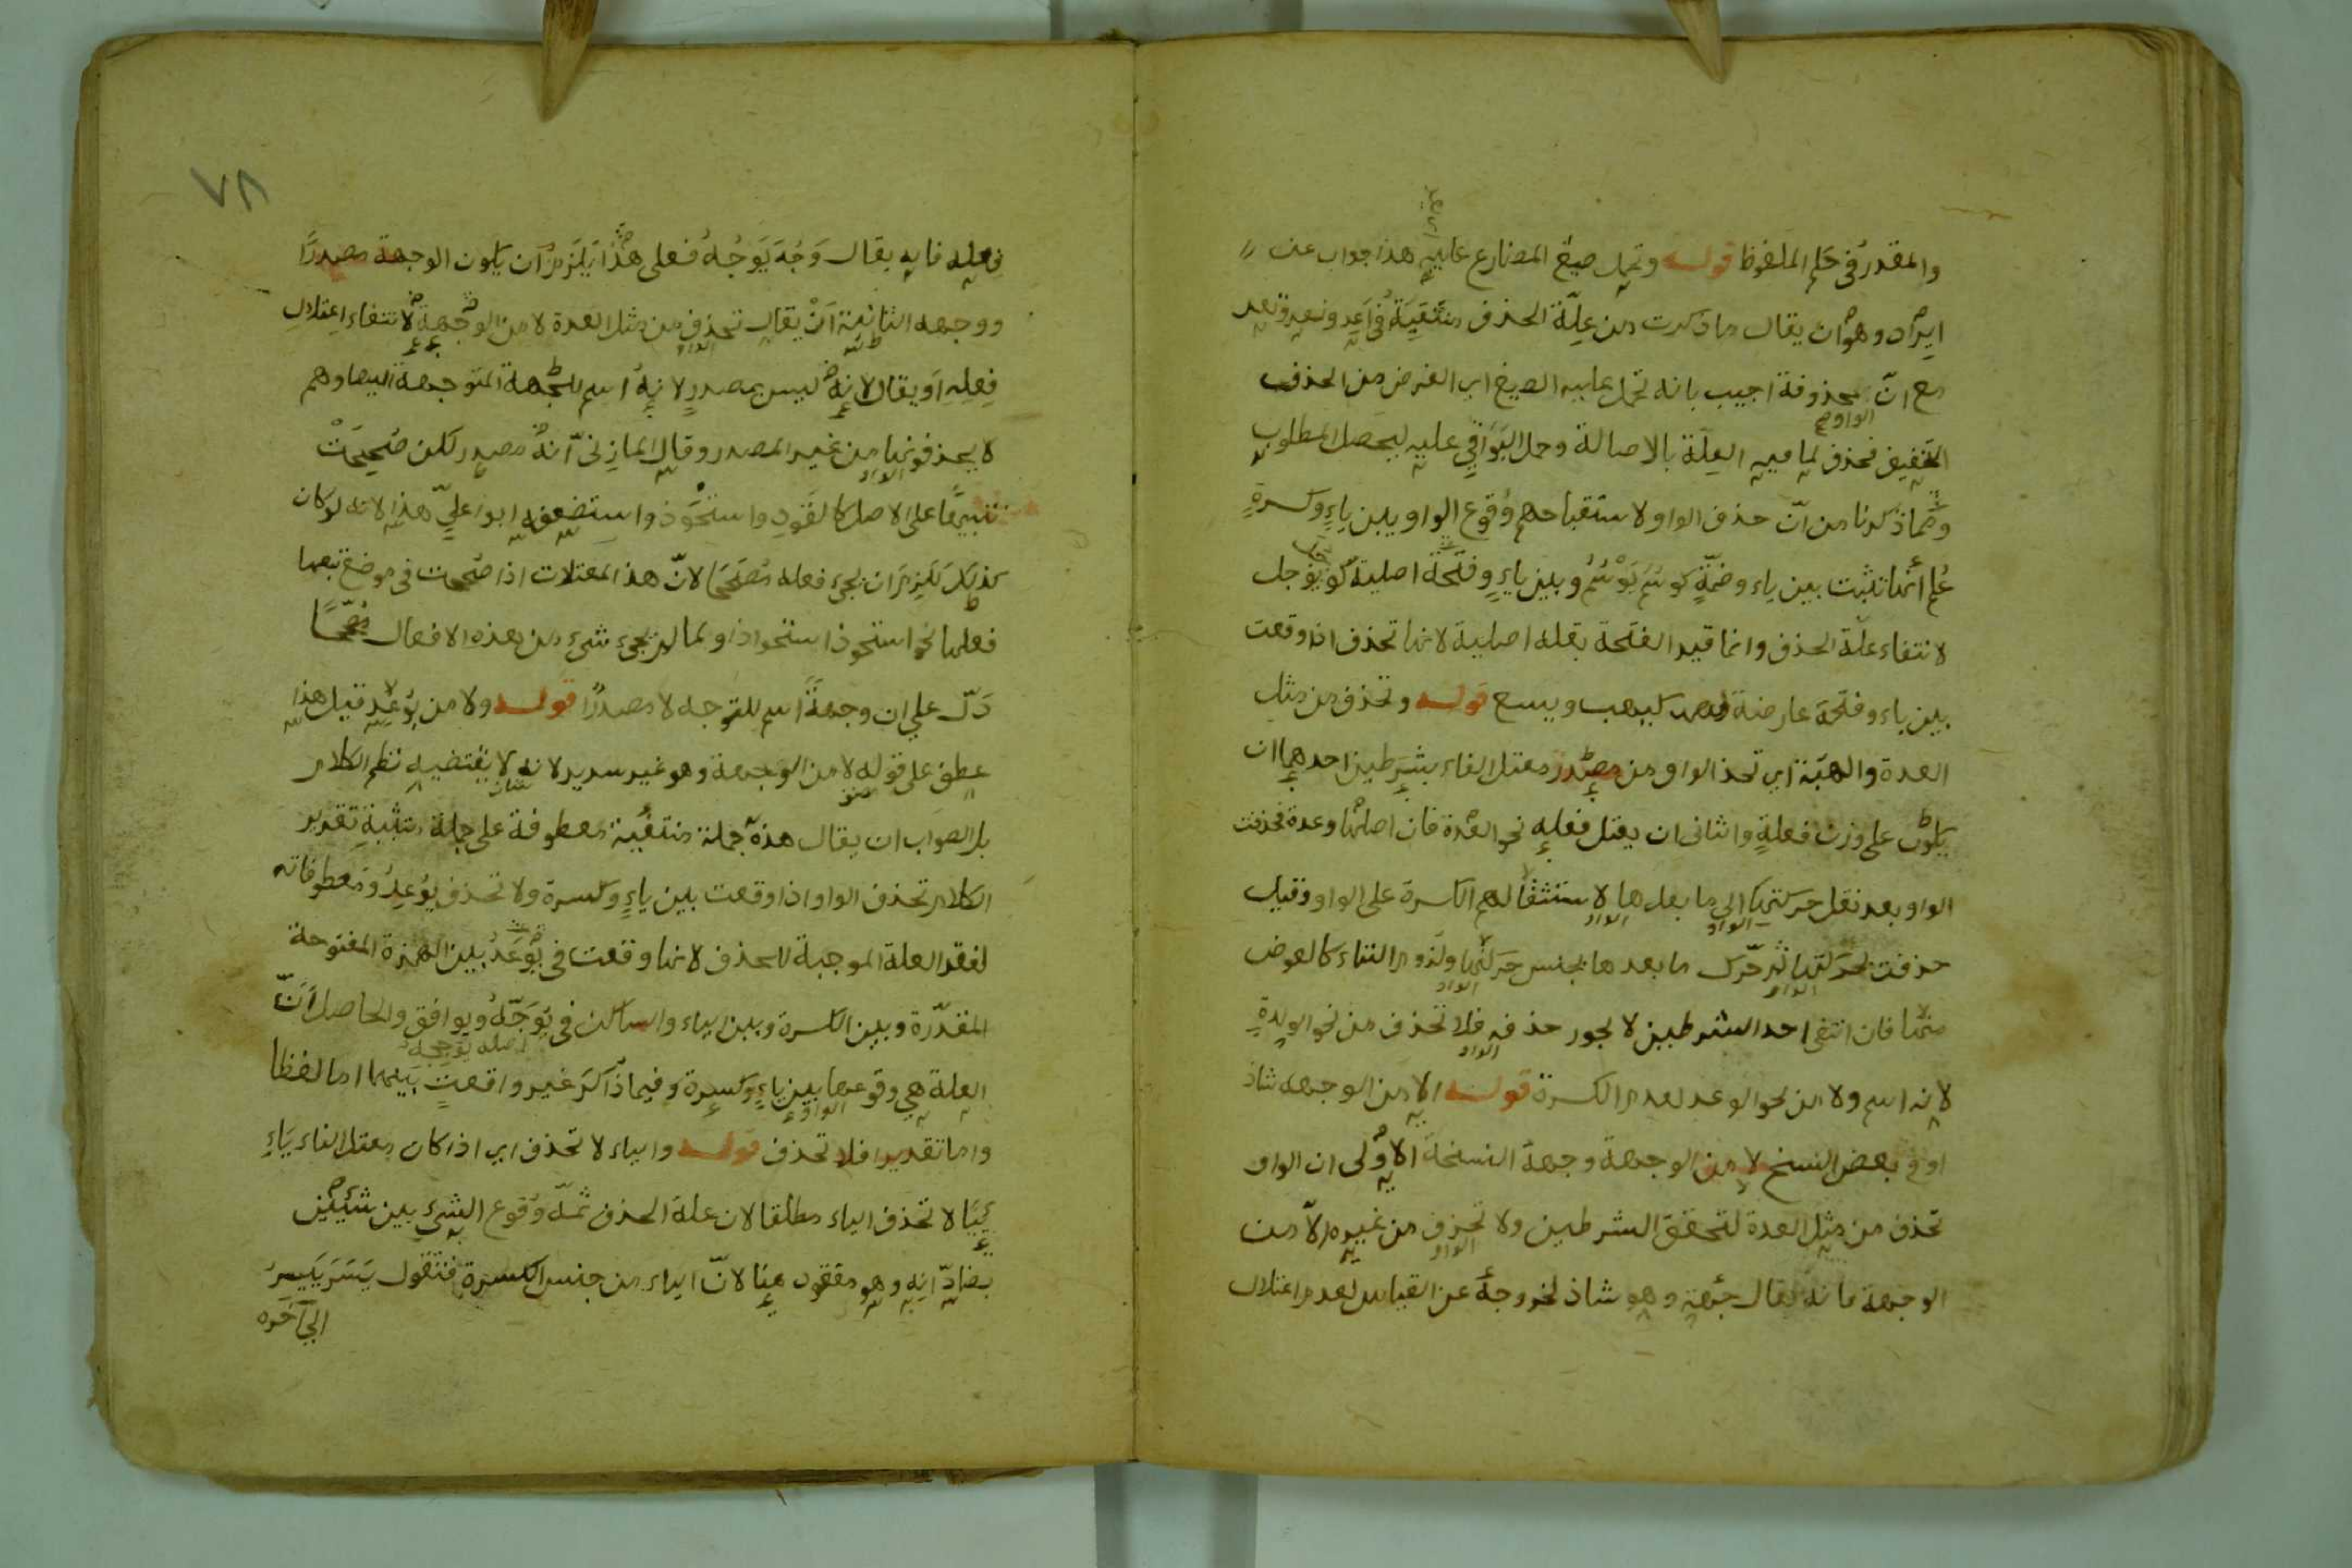 والمقدر في حكم الملفوظ قوله وتحمل صيغ المضارع عليه هذا جواب عن
ايراد وهو ان يقال ما ذكرت من علّة الحذف منتفية في أعد ونعد وتعد
مع انّ الواو محذوفة اجيب بانه تحمل عليه الصيغ اي الغرض من الحذف
التخفيف فحذف لما فيه العلّة بالاصالة وحمل البواقي عليه ليحصل المطلوب
ومما ذكرنا من انّ حذف الواو لاستقباحهم وقوع الواو بين ياءٍ وكسرةٍ
عُلم أنها تثبت بين ياء وضمّةٍ كوسُمَ يَوْسُمُ وبين ياءٍ وفتحة اصلية كوجل يوجل
لانتفاء علّة الحذف وانما قيد الفتحة بقوله اصلية لانها تحذف اذا وقعت
بين ياء وفتحة عارضة كيهب ويسع قوله وتحذف من مثل
العدة والهبة اي تحذ الواو من مصدر معتل الفاء بشرطين احدهما ان
يكون على وزن فعلةٍ والثاني ان يعتل فعله نحو العدة فان اصلها وعدة فحذفت
الواو بعد نقل حركتها الى ما بعدها لاستثقالهم الكسرة على الواو وقيل
حذفت بحركتها ثم حرّك ما بعدها بجنس حركتها ولزوم التاء كالعوض
منها فان انتفى احد الشرطين لا يجوز حذفه فلا تحذف من نحو الولدة
لانه اسم ولا من نحو الوعد لعدم الكسرة قوله الا من الوجهه شاذ
او في بعض النسخ لا من الوجهة وجهة النسخة الاولى ان الواو
تحذف من مثل العدة لتحقق الشرطين ولا تحذف من غيره الّا من
الوجهة فانه يقال جهة وهو شاذ لخروجه عن القياس لعدم اعتلال
٧٨
فعله فانه يقال وَجُهَ يَوْجُهُ فعلى هذا يلزم ان يكون الوجهة مصدرًا
ووجهه الثانية اَنْ يقال تحذف الواو من مثل العدة لا من الوجهة لانتفاء اعتلال
فعله او يقال لانه ليس بمصدرٍ لانه اسم للجهة المتوجهة اليها وهم
لا يحذفونها من غير المصدر وقال المازنى انه مصدر لكن صُحِّحَتْ
تنبيهًا على الاصل كالقود واستحوذ واستضعفه ابو عليّ هذا لانه لو كان
كذلك للزم ان يجيء فعله مصححا لانّ هذا المعتلات اذا صححت في موضع تبعها
فعلها نحو استحوذ استحواذا ولما لم يجيء شيء من هذه الافعال مصحّحًا
دَلّ على ان وجهةً اسم للتوجه لا مصدرًا قوله ولا من يُوْعِد قيل هذا
عطف على قوله لا من الوجهة وهو غير سديد لانه لا يقتضيه نظم الكلام
بل الصواب ان يقال هذه جملة منتفية معطوفة على جملة مثبتة تقدير
الكلام تحذف الواو اذا وقعت بين ياءٍ وكسرة ولا تحذف يوعِدُ ومعطوفاته
لفقد العلة الموجبة للحذف لانها وقعت في يُوْعَدُ بين الهمزة المفتوحة
المقدّرة وبين الكسرة وبين الياء والساكن في يُوَجّهُ ويوافق والحاصل أنّ
العلة هي وقوعها بين ياءٍ وكسرة وفيما ذكر غير واقعت بينهما اما لفظا
واما تقديرا فلا تحذف قوله والياء لا تحذف اي اذا كان معتل الفاء ياءٍ
يائيا لا تحذف الياء مطلقا لان علة الحذف ثمه وقوع الشيء بين شيئين
يضادّانه وهو مفقود هنا لانّ الياء من جنس الكسرة فتقول يَسَرَ يَيْسِرُ
الى آخره